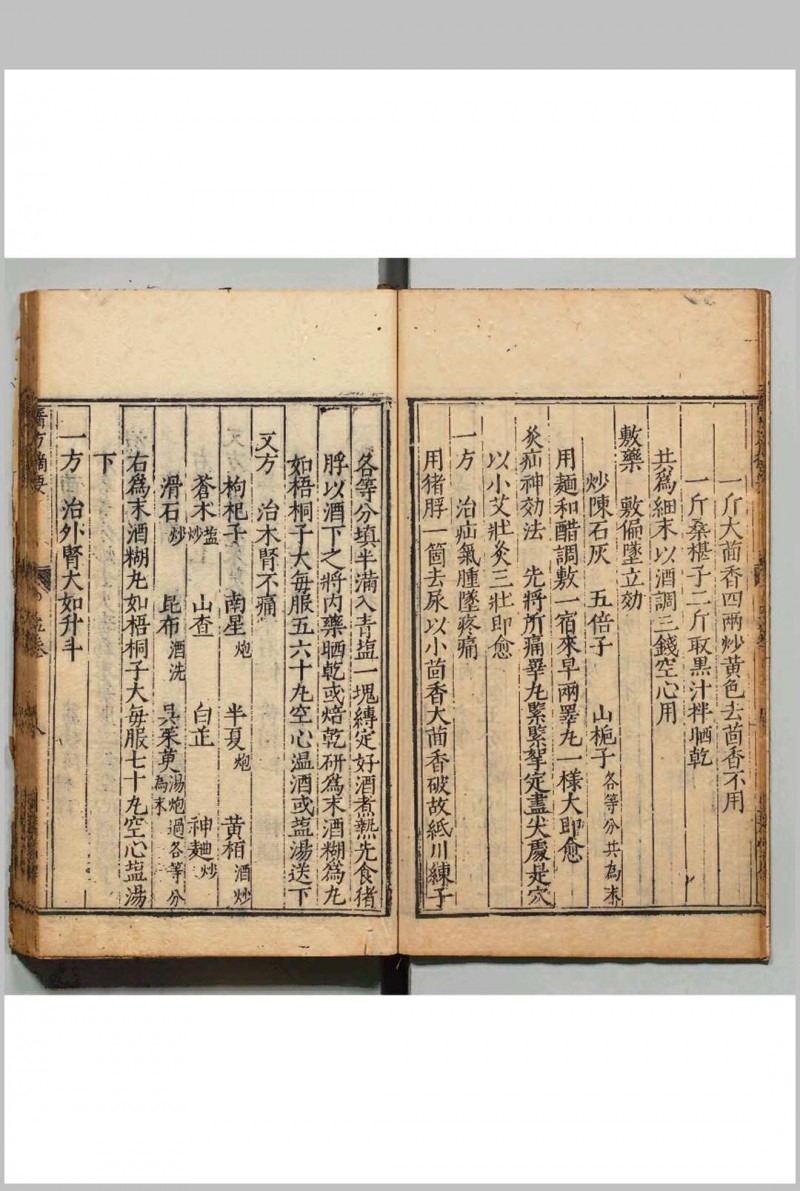 一斤大茴香四兩炒黄色去茴香不用
一斤桑椹子二斤取黒汁拌晒乾
共爲細末以酒調三錢空心用
敷藥　敷偏墜立効
炒陳石灰　五倍子　山梔子各等分共為末
用麺和醋調敷一宿來早兩睪丸一樣大即愈
灸疝神効法　先將所痛睪丸緊緊挐定盡尖處是穴
以小艾壯灸三壯即愈
一方　治疝氣腫墜疼痛
用猪脬一箇去尿以小茴香大茴香破故紙川練子
各等分填半滿入青塩一塊縛定好酒煮熟先食猪
脬以酒下之將内藥晒乾或焙乾研爲末酒糊爲丸
如梧桐子大毎服五六十丸空心温酒或塩湯送下
又方　治木腎不痛
枸杞子　南星炮　半夏炮　黄栢酒炒
蒼木塩炒　山查　白芷　神麯炒
滑石炒　昆布酒洗　吳茱萸湯炮過各等分為末
右爲末酒糊丸如梧桐子大毎服七十丸空心塩湯
下
一方　治外腎大如升斗
醫方摘要
卷
八